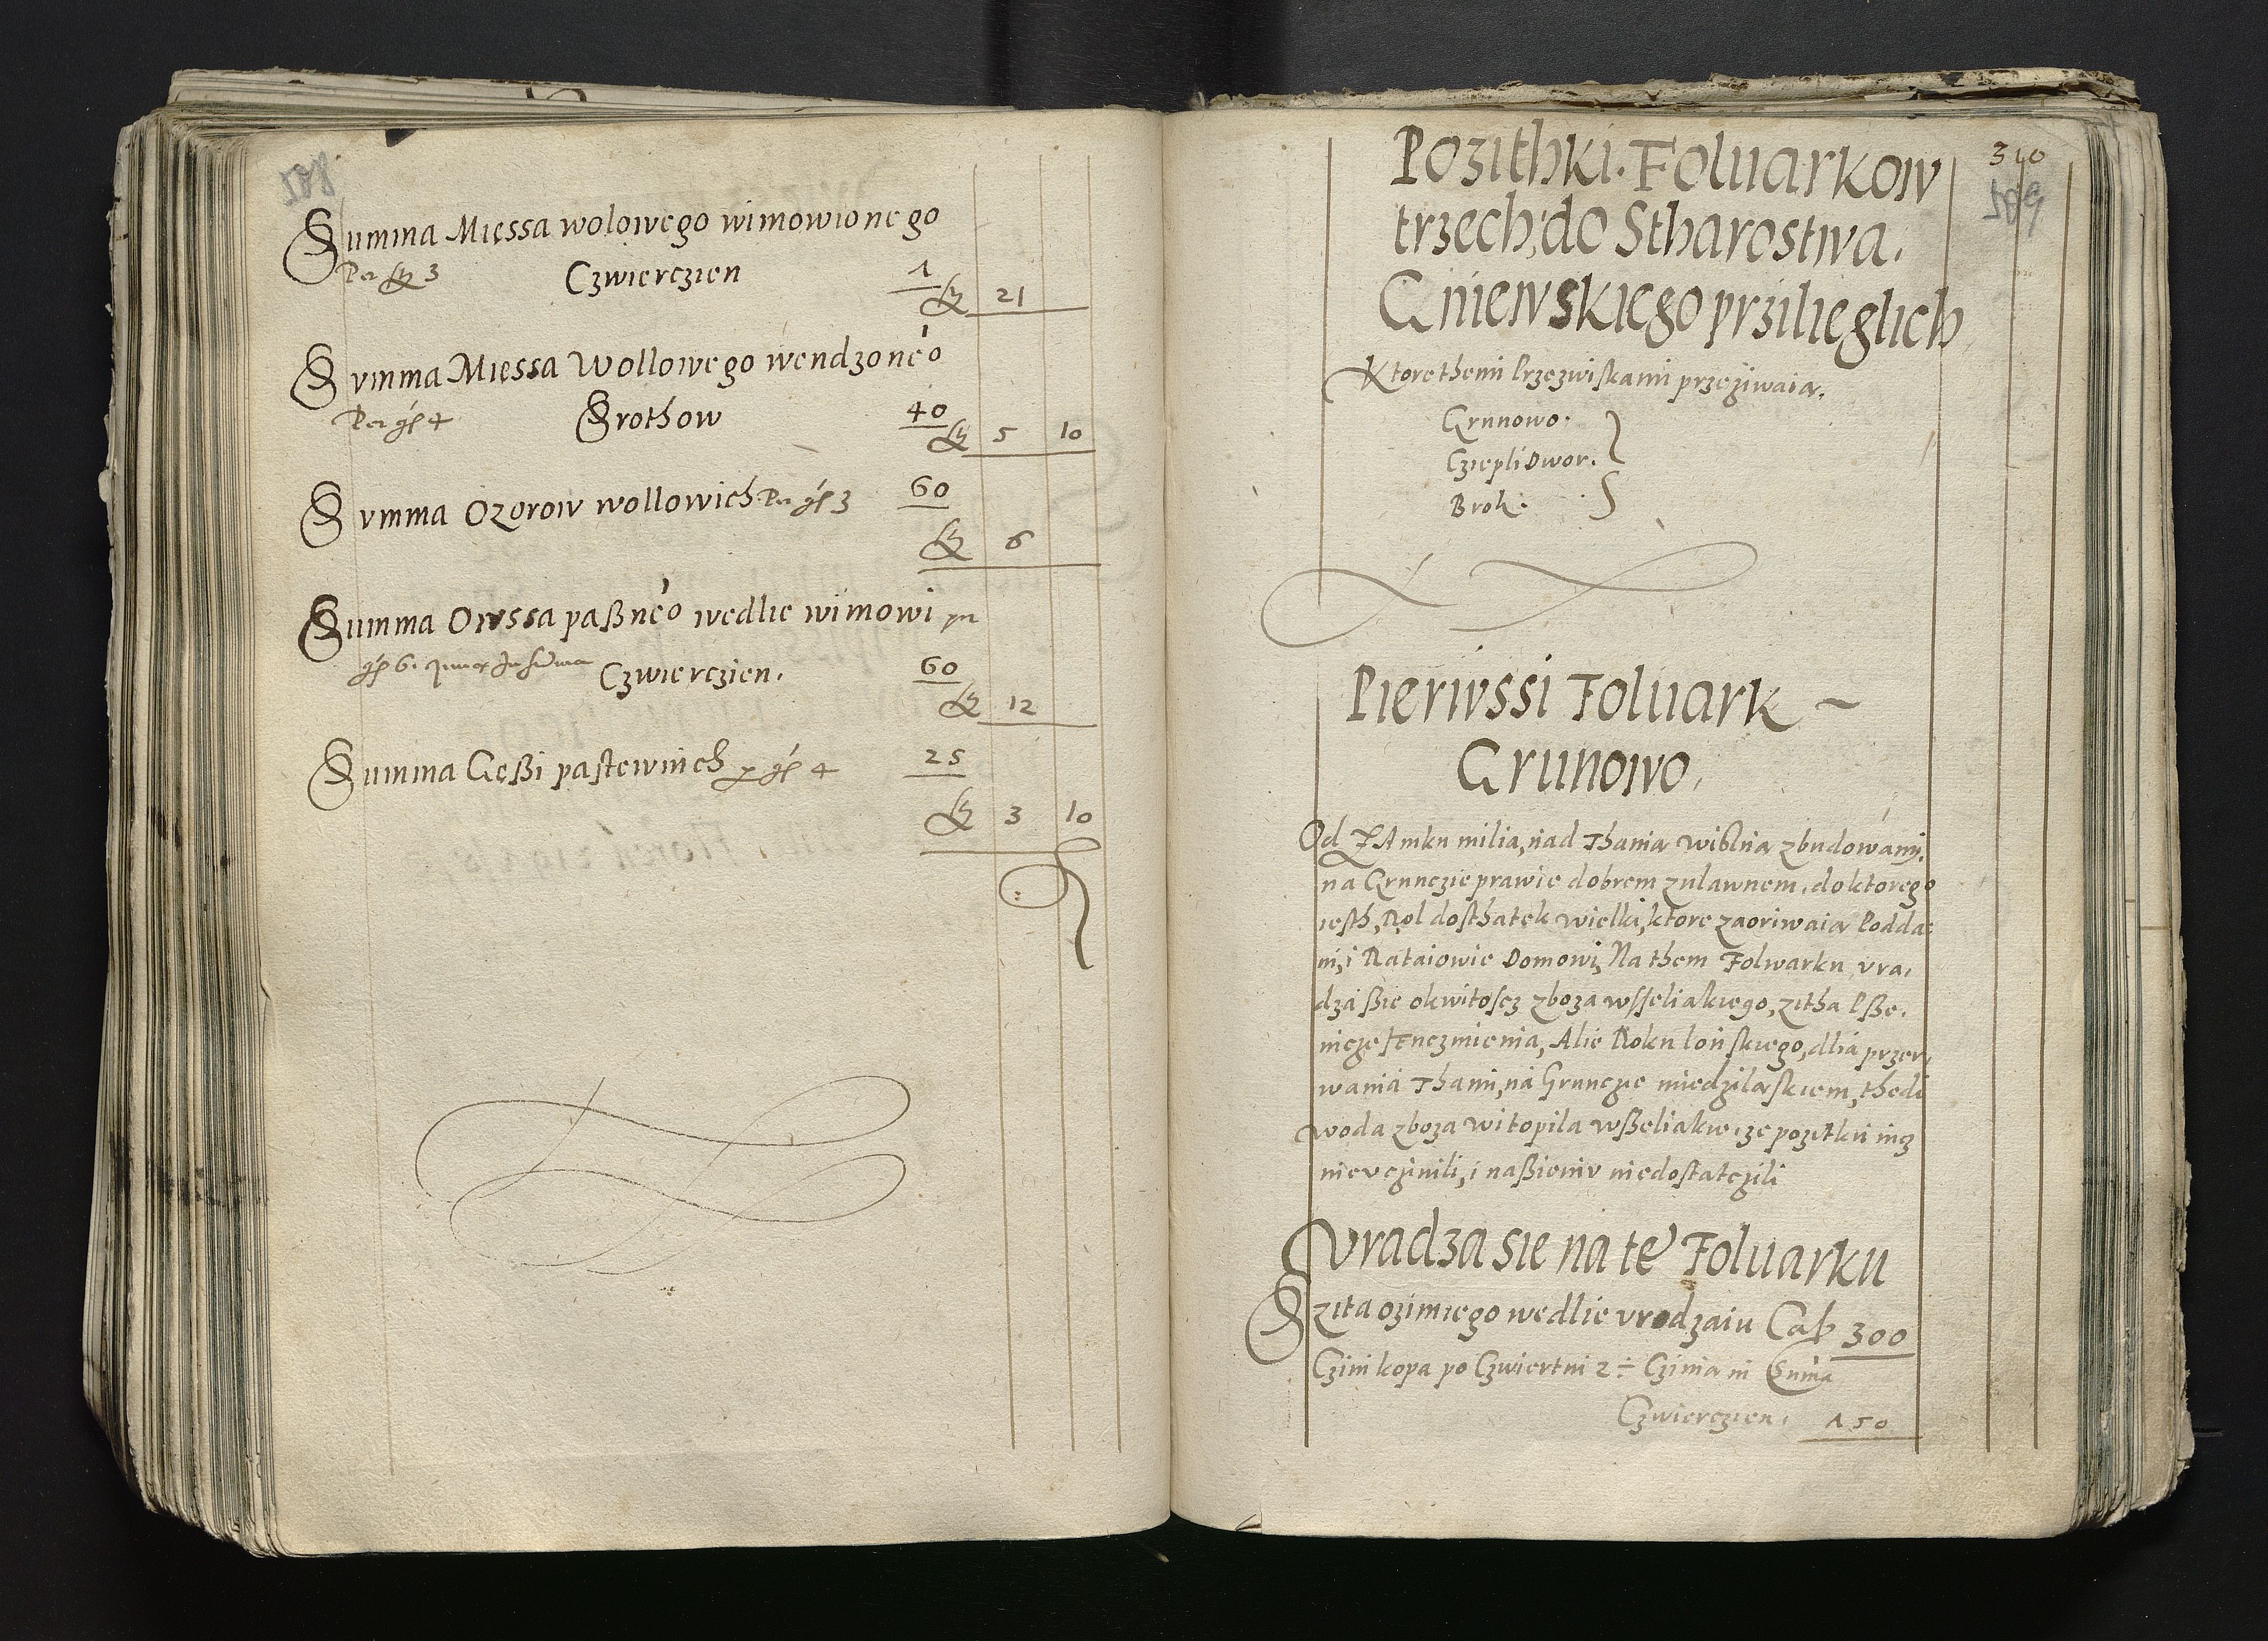 508
Summa Mięssa wolowego wimowionego
Per 3 Czwierczien 1
21
Svmma Mięssa Wollowego wendzone̾o
Per g̃ 4 Srothow 40
5 10
Svmma Ozorow wollowich Per g̃ 3 60
6
Summa Owssa paßne̾o wedlie wimowi
g̃ 6 Czwierczien. 60
12
Summa Gęßi pastewnich g̃ 4 25
3 10
310
509
Pozithki Foluarkow
trzech, do Stharostwa.
Gniewskiego przilieglich
Ktore themi Przezwiskami przeziwaią.
Grunowo.
Czepli Dwor.
Brok.
Pierwssi Foluark
Grunowo.
Od ZAmku milia, nad Thamą Wislną zbudowami,
na Grunczie prawie dobrem zulawnem, do ktorego
iesth, Rol dosthatek wielki, ktore zaoriwaią Podda:
ni, i Rataiowie Domowi, Na them Folwarku vra,
dza ßie okwitoscz zboza wsseliakiego, zitha Psze,
nicze Ienczmienia, Alie Roku lonskiego, dlia przer,
wania Thami, na Grunczie miedzilaskiem, thedi
woda zboza witopila wßeliakie, ze pozitku nicz
nie vczinili, i naßieniv niedostatczili
Vradza sie na te Foluarku
zita ozimiego wedlie vrodzaiu Cap 300
Czini kopa po Czwiertni 2 ÷ Czinią in Suma
Czwierczien. 150